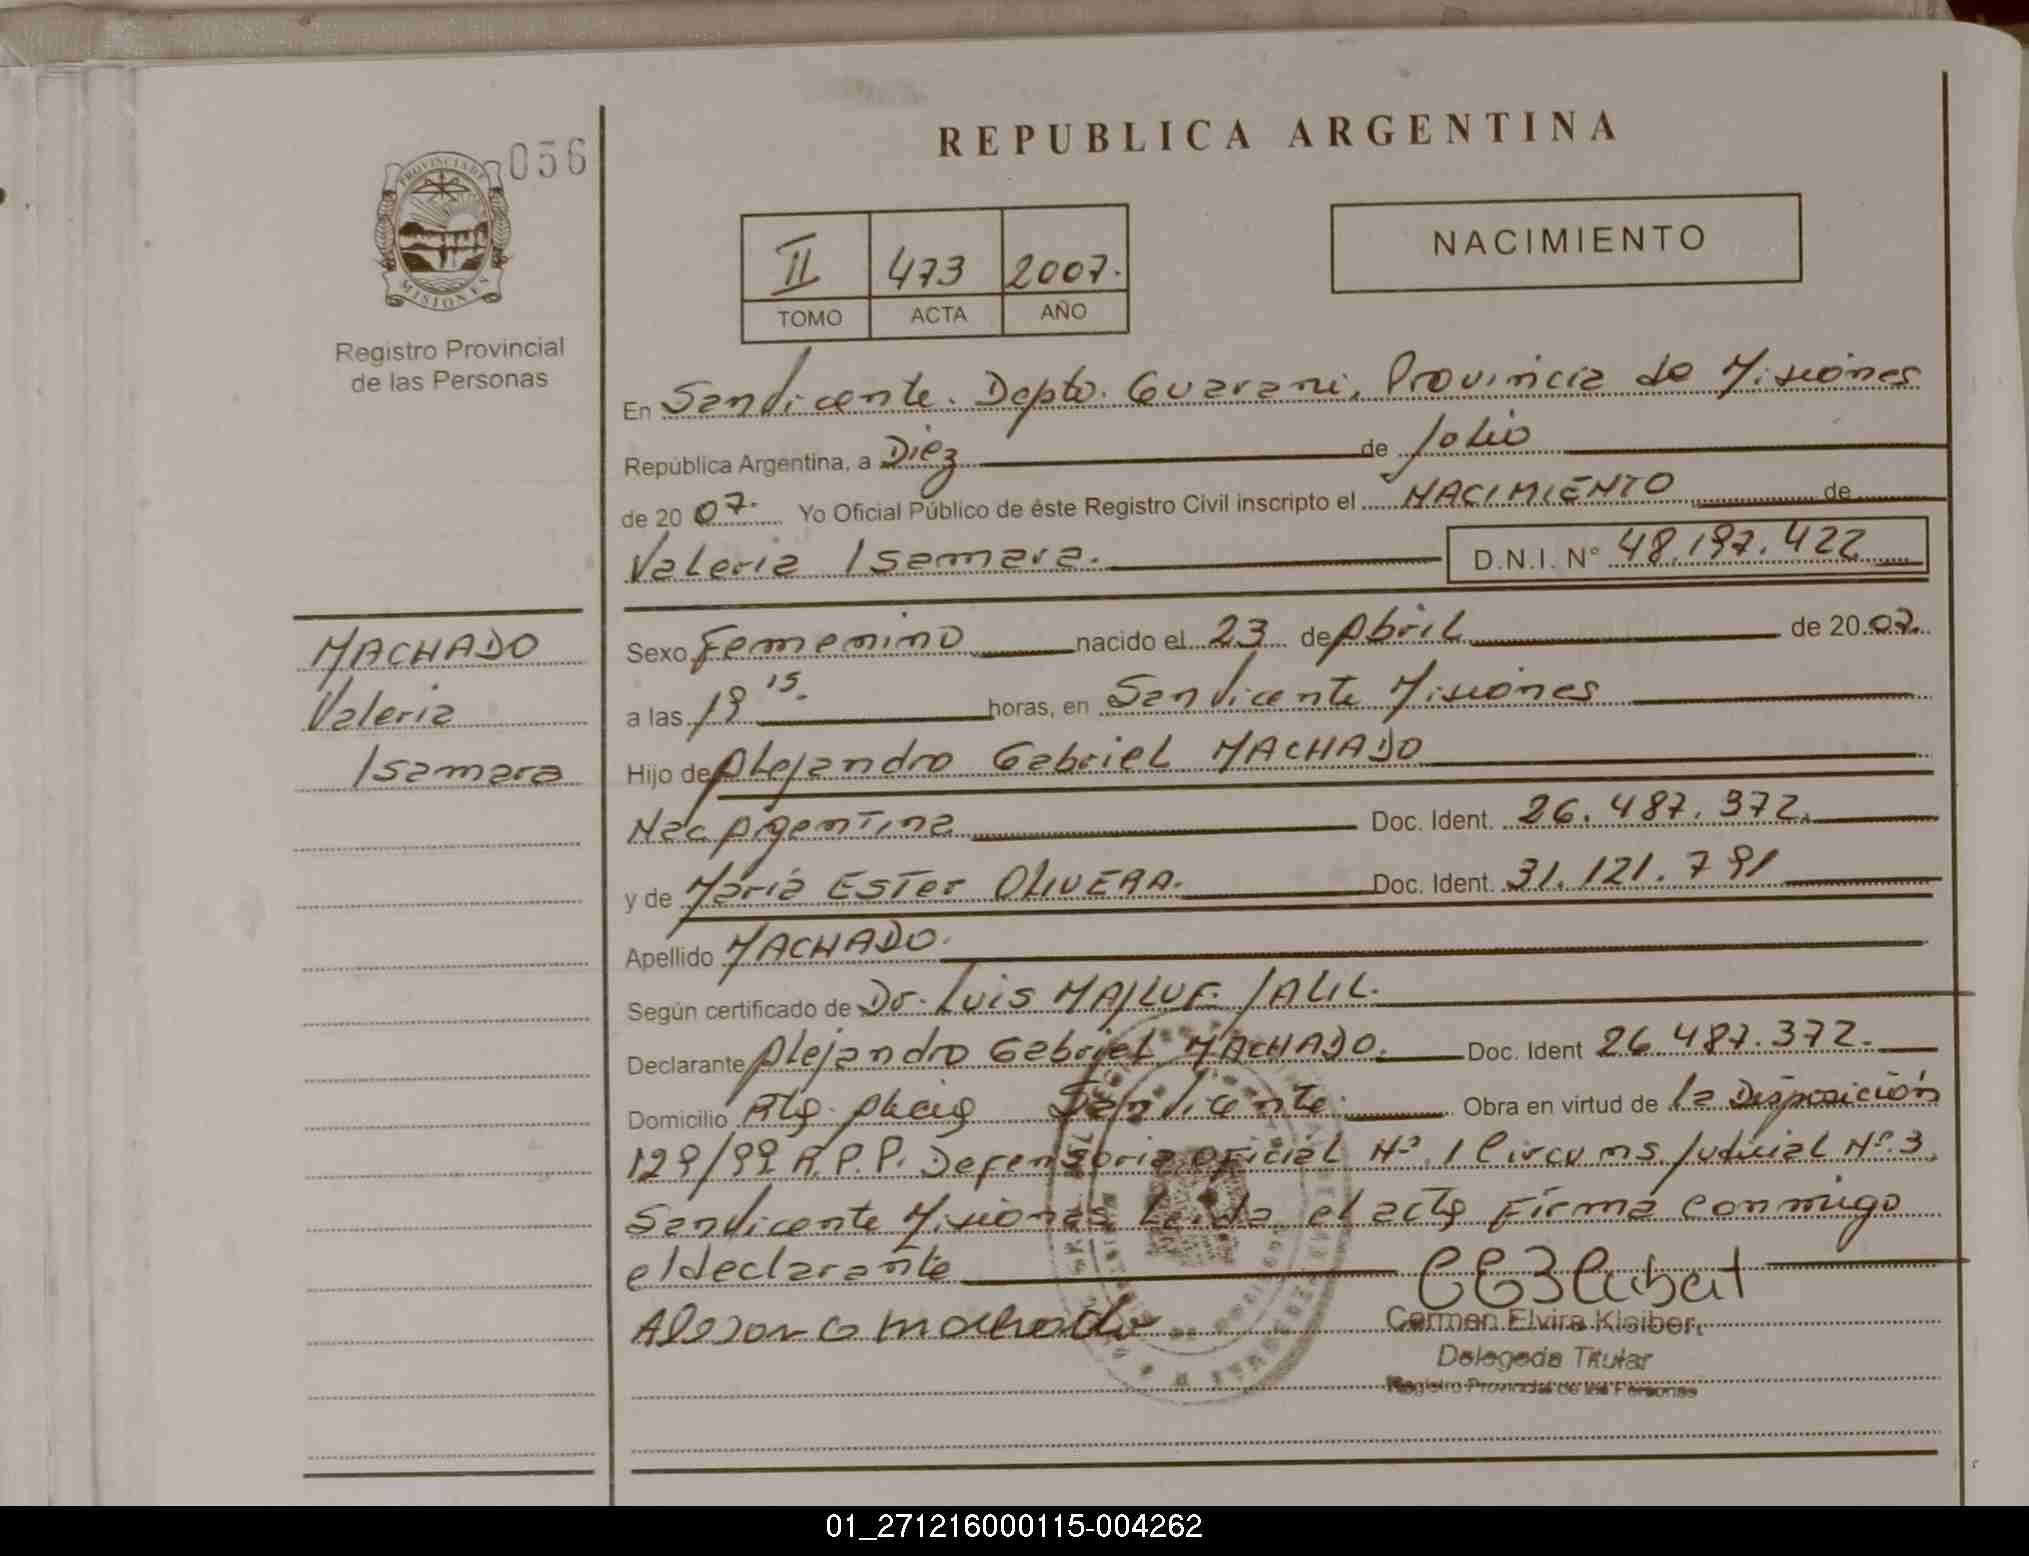 056
PROVINCIA DE
MISIONES
Registro Provincial
de las Personas
REPUBLICA ARGENTINA
II 473 2007.
TOMO ACTA AÑO
NACIMIENTO
En San Vicente. Dpto. Guarani, Provincia de Misiones
República Argentina, a Diez de Julio
de 2007. Yo Oficial Público de éste Registro Civil inscripto el NACIMIENTO de
Valeria Isamara. D.N.I. N° 48.197.422
MACHADO
Valeria
Isamara
Sexo Femenino nacido el 23 de Abril de 2007.
a las 19 15. horas, en San Vicente Misiones
Hijo de Alejandro Gabriel MACHADO
Nac Argentina Doc. Ident. 26.487.372.
y de María Ester OLIVERA. Doc. Ident. 31.121.791
Apellido MACHADO.
Según certificado de Dr. Luis MAJLUF. JALIL.
Declarante Alejandro Gabriel MACHADO. Doc. Ident 26.487.372.
Domicilio San Vicente. Obra en virtud de la Disposición
129/99 R.P.P. Defensoria Oficial N° 1 Circuns. Judicial N° 3.
San Vicente Misiones Leida el acta Firma conmigo
el declarante
Carmen Elvira Kleiber
Delegada Titular
Registro Provincial de las Personas
01_271216000115-004262